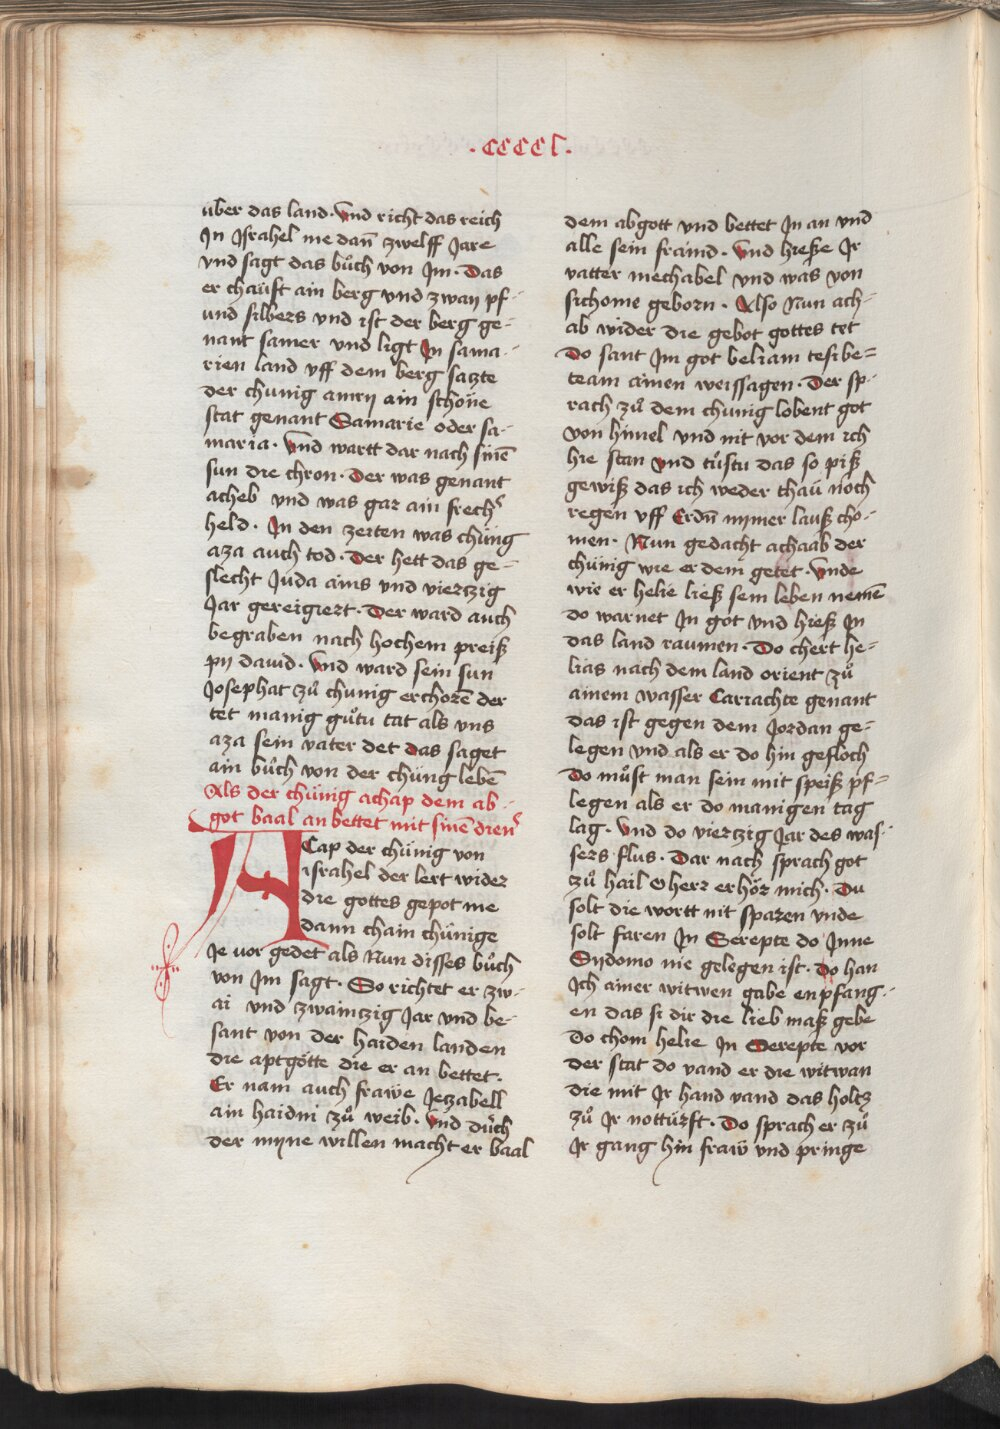 .CCCCL.
über das land. Vnd richt das reich
In Israhel me dan̄ zwelff Jare
vnd sagt das bůch von Im. Das
er chaüft ain berg vnd zwaÿ pf-
und silbers vnd ist der berg ge-
nant samer vnd ligt In sama-
rien land vff dem berg satzte
der chunig amrÿ ain schöne
stat genant Samarie oder sa-
maria. Vnd wartt dar nach sinē
sun die chron. Der was genant
acheb vnd was gar ain frech͛
held. In den zeiten was chüng
aza auch tod. Der hett das ge-
slecht Juda ains vnd viertzig
Jar gereigiert. Der ward auch
begraben nach hochem preiß
pÿ dauid. Vnd ward sein sun
Josephat zů chunig erchorē der
tet manig gůtu tat als vns
aza sein vater det das saget
ain bůch von der chüng lebē
Als der chünig achap dem ab-
got baal an bettet mit sinē dien͛
ACap der chünig von
israhel der lert wider
die gottes gepot me
dann chain chünige
Je vor gedet als Nun disses bůch
von Im sagt. So richtet er zw-
ai vnd zwaintzig Jar vnd be-
sant von der haiden landen
die aptgötte die er an bettet.
Er nam auch frawe Jetzabell
ain haidni zů weib. Vnd důch
der mÿne willen macht er baal
dem abgott vnd bettet In an vnd
alle sein fraind. Vnd hieße Ir
vatter mechabel vnd was von
sichome geborn. Also Nun ach-
ab wider die gebot gottes tet
Do sant Im got heliam tesibe=
team ainen weissagen. Der sp-
rach zů dem chunig lobent got
von himel vnd nit vor dem ich
hie stan vnd tůstu das so piß
gewiß das ich weder thaü noch
regen vff Erdn̄ nÿmer lauß cho-
men. Nun gedacht achaab der
chünig wie er dem getet. Vnde
wie er helie ließ sein leben nemē
do warnet In got vnd hieß In
das land raumen. Do chert he-
lias nach dem land orient zů
ainem wasser Cariachte genant
das ist gegen dem Jordan ge-
legen vnd als er do hin gefloch
Do můst man sein mit speiß pf-
legen als er do manigen tag
lag. Vnd do viertzig Jar des was-
sers flus. Dar nach sprach got
zů hail O herr erhör mich. Du
solt die wortt nit sparen vnde
solt faren In Serepte do Inne
Sydomo nie gelegen ist. Do han
Ich ainer witwen gabe enpfang-
en das si dir die lieb maß gebe
Do chom helie In Serepte vor
der stat do vand er die witwan
die mit Ir hand vand das holtz
zů Ir nottürft. Do sprach er zů
Ir gang hin fraw vnd pringe